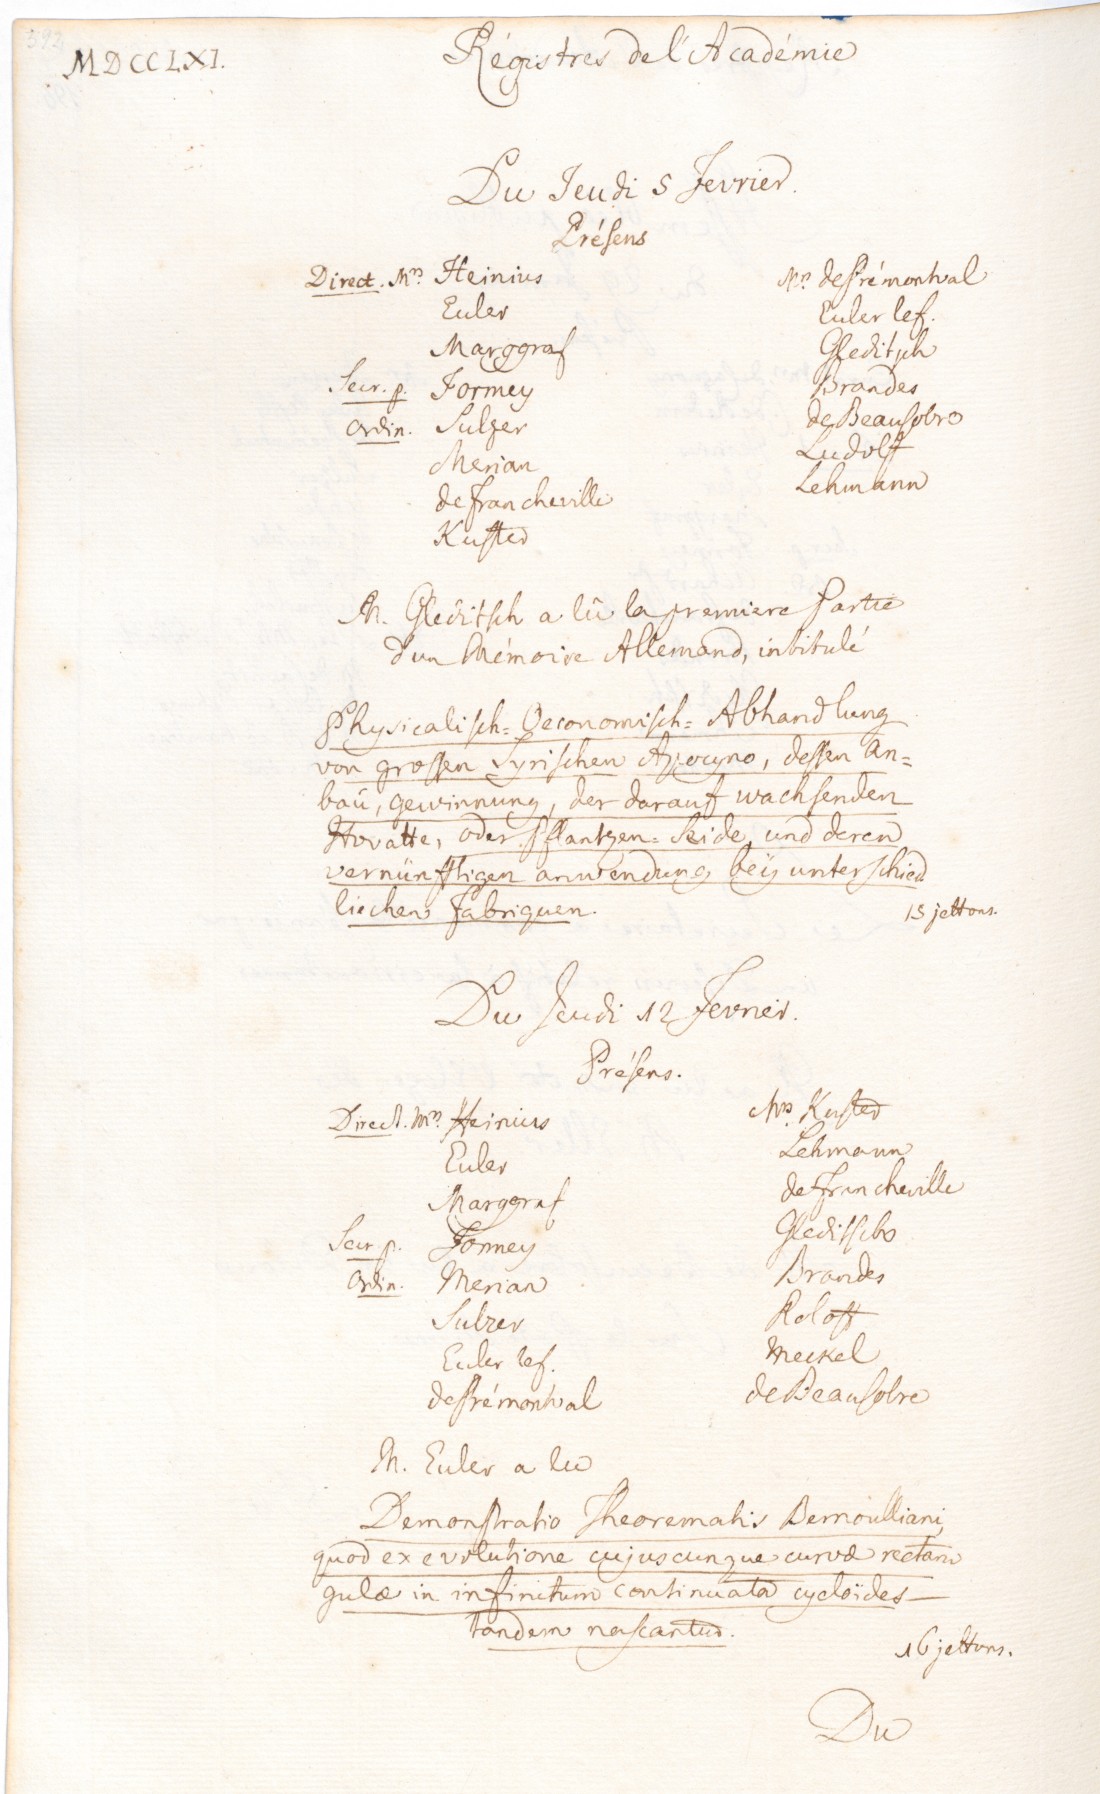 MDCCLXI.
Régistres de l'Académie
Du Jeudi 5 Fevrier.
Présens
Direct. Mrs Heinius
Euler
Marggraf
Secr. p. Formey
Ordin. Sulzer
Merian
de Francheville
Kuster
Mrs de Prémontval
Euler le f.
Gleditsch
Brandes
de Beausobre
Ludolff
Lehmann
M. Gleditsch a lû la premiere partie
d'un Mémoire Allemand, intitulé
Physicalisch-Oeconomisch-Abhandlung
von grossen Syrischen Apocyno, dessen an-
bau, gewinnung, der darauf wachsenden
Hovatte, oder Pflantzen-Seide und deren
vernünfftigen anwendung beÿ unterschied
liechen Fabriquen.
15 jettons.
Du Jeudi 12 Fevrier.
Présens.
Direct. Mrs Heinius
Euler
Marggraf
Secr. p. Formey
Ordin. Merian
Sulzer
Euler le f.
de Prémontval
Mrs Kuster
Lehmann
de Francheville
Gleditsch
Brandes
Roloff
Meckel
de Beausobre
M. Euler a lu
Demonstratio Theorematis Bernoulliani,
quod ex evolutione cujuscunque curvæ rectan
gulæ in infinitum continuata cycloïdes
tandem nascantur.
16 jettons.
Du